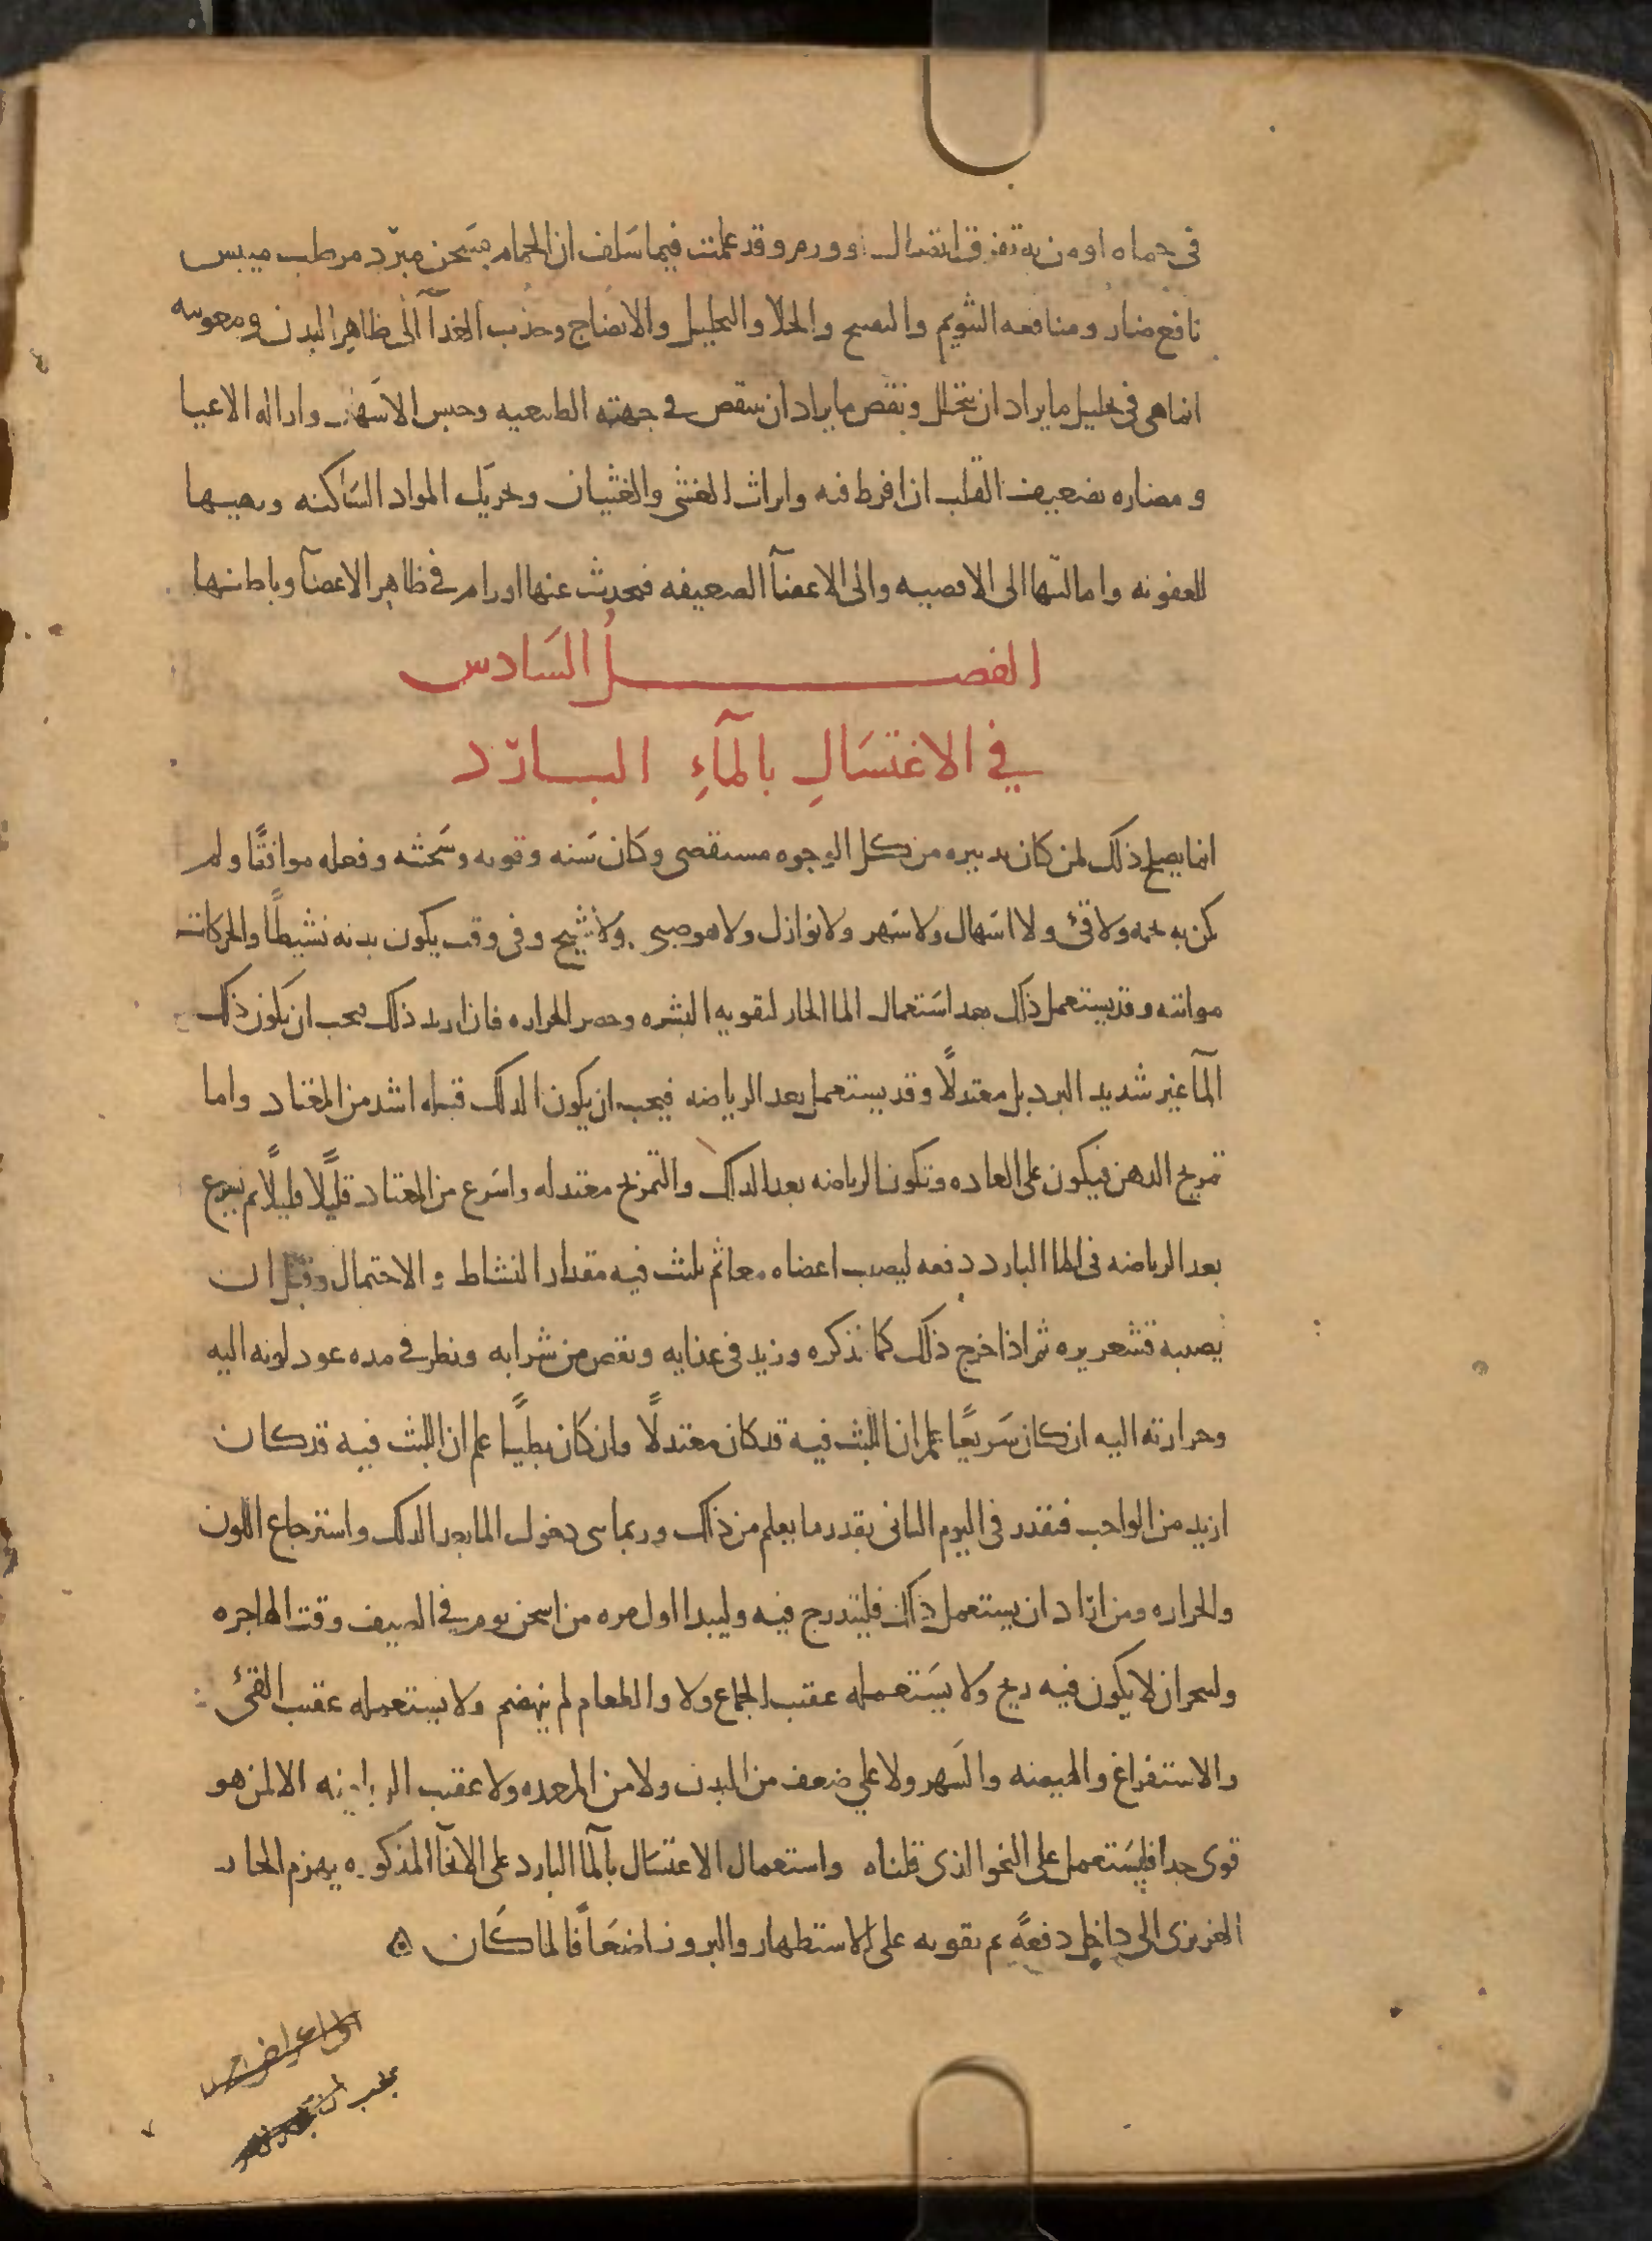 في حماه او من به تفرق اتصال او ورم وقد علمت فيما سلف ان الحمام مسخن مبرّد مرطب ميبس
نافع ضار ومنافعه التنويم والتفتيح والجلا والتحليل والانضاج وجذب الغذآ الى ظاهر البدن ومعونته
انما هي في تحليل ما يراد ان يتحلل ونفض ما يراد ان ينتفض في جهته الطبيعيه وحبس الاسهال وازاله الاعيا
ومضاره تضعيف القلب ان افرط فيه وايراث الغشي والغثيان وتحريك المواد الساكنه وتهييها
للعفونه وامالتها الى الافضيه والى الاعضآ الضعيفه فيحدث عنها اورام في ظاهر الاعضآ وباطنها
الفصل السَادس
في الاغتسَالِ بالمآءِ البارّد
انما يصلح ذلك لمن كان تدبيره من كل الوجوه مستقصى وكان سَنه وقوته وسَحنته وفصله موافقًا ولم
يكن به تخمه ولا قئ ولا اسَهال ولا سَهر ولا نوازل ولا هو صبي ولا شيخ وفي وقت يكون بدنه نشيطًا والحركات
مواتيه وقد يستعمل ذلك بعد اسَتعمال الما الحار لتقويه البشره وحصر الحراره فان اريد ذلك فيجب ان يكون ذلك
المآ غير شديد البرد بل معتدلًا وقد يستعمل بعد الرياضه فيجب ان يكون الدلك قبله اشد من المعتاد واما
تمريخ الدهن فيكون على العاده وتكون الرياضه بعد الدلك والتمريخ معتدله واسَرع من المعتاد قليلًا قليلًا ثم يشرع
بعد الرياضه في الما البارد دفعه ليصب اعضاه معا ثم يلبث فيه مقدار النشاط والاحتمال وقبل ان
يصيبه قشعريره ثم اذا خرج ذلك كما نذكره وزيد في غذايه ونقص من شرابه ونظر في مده عود لونه اليه
وحرارته اليه ان كان سَريعًا علم ان اللبث فيه قد كان معتدلًا وان كان بطيًا علم ان اللبث فيه قد كان
ازيد من الواجب فيقدر في اليوم الثاني بقدر ما يعلم من ذلك وربما ثنى دخول الما بعد الدلك واسترجاع اللون
والحراره ومن اراد ان يستعمل ذلك فليتدرج فيه وليبدا اول مره من اسخن يوم في الصيف وقت الهاجره
وليتحر ان لا يكون فيه ريح ولا يسَتعمله عقب الجماع ولا والطعام لم ينهضم ولا يستعمله عقب القئ
والاستفراغ والهيضه والسَهر ولا علي ضعف من البدن ولا من المعده ولا عقب الرياضه الا لمن هو
قوى جدا فليسَتعمل على النحو الذى قلناه واستعمال الاغتسَال بالمآ البارد على الانحآ المذكوره يهزم الحار
الغريزى الى داخل دفعةً ثم تقويه على الاستظهار والبروز اضعَافًا لما كَان